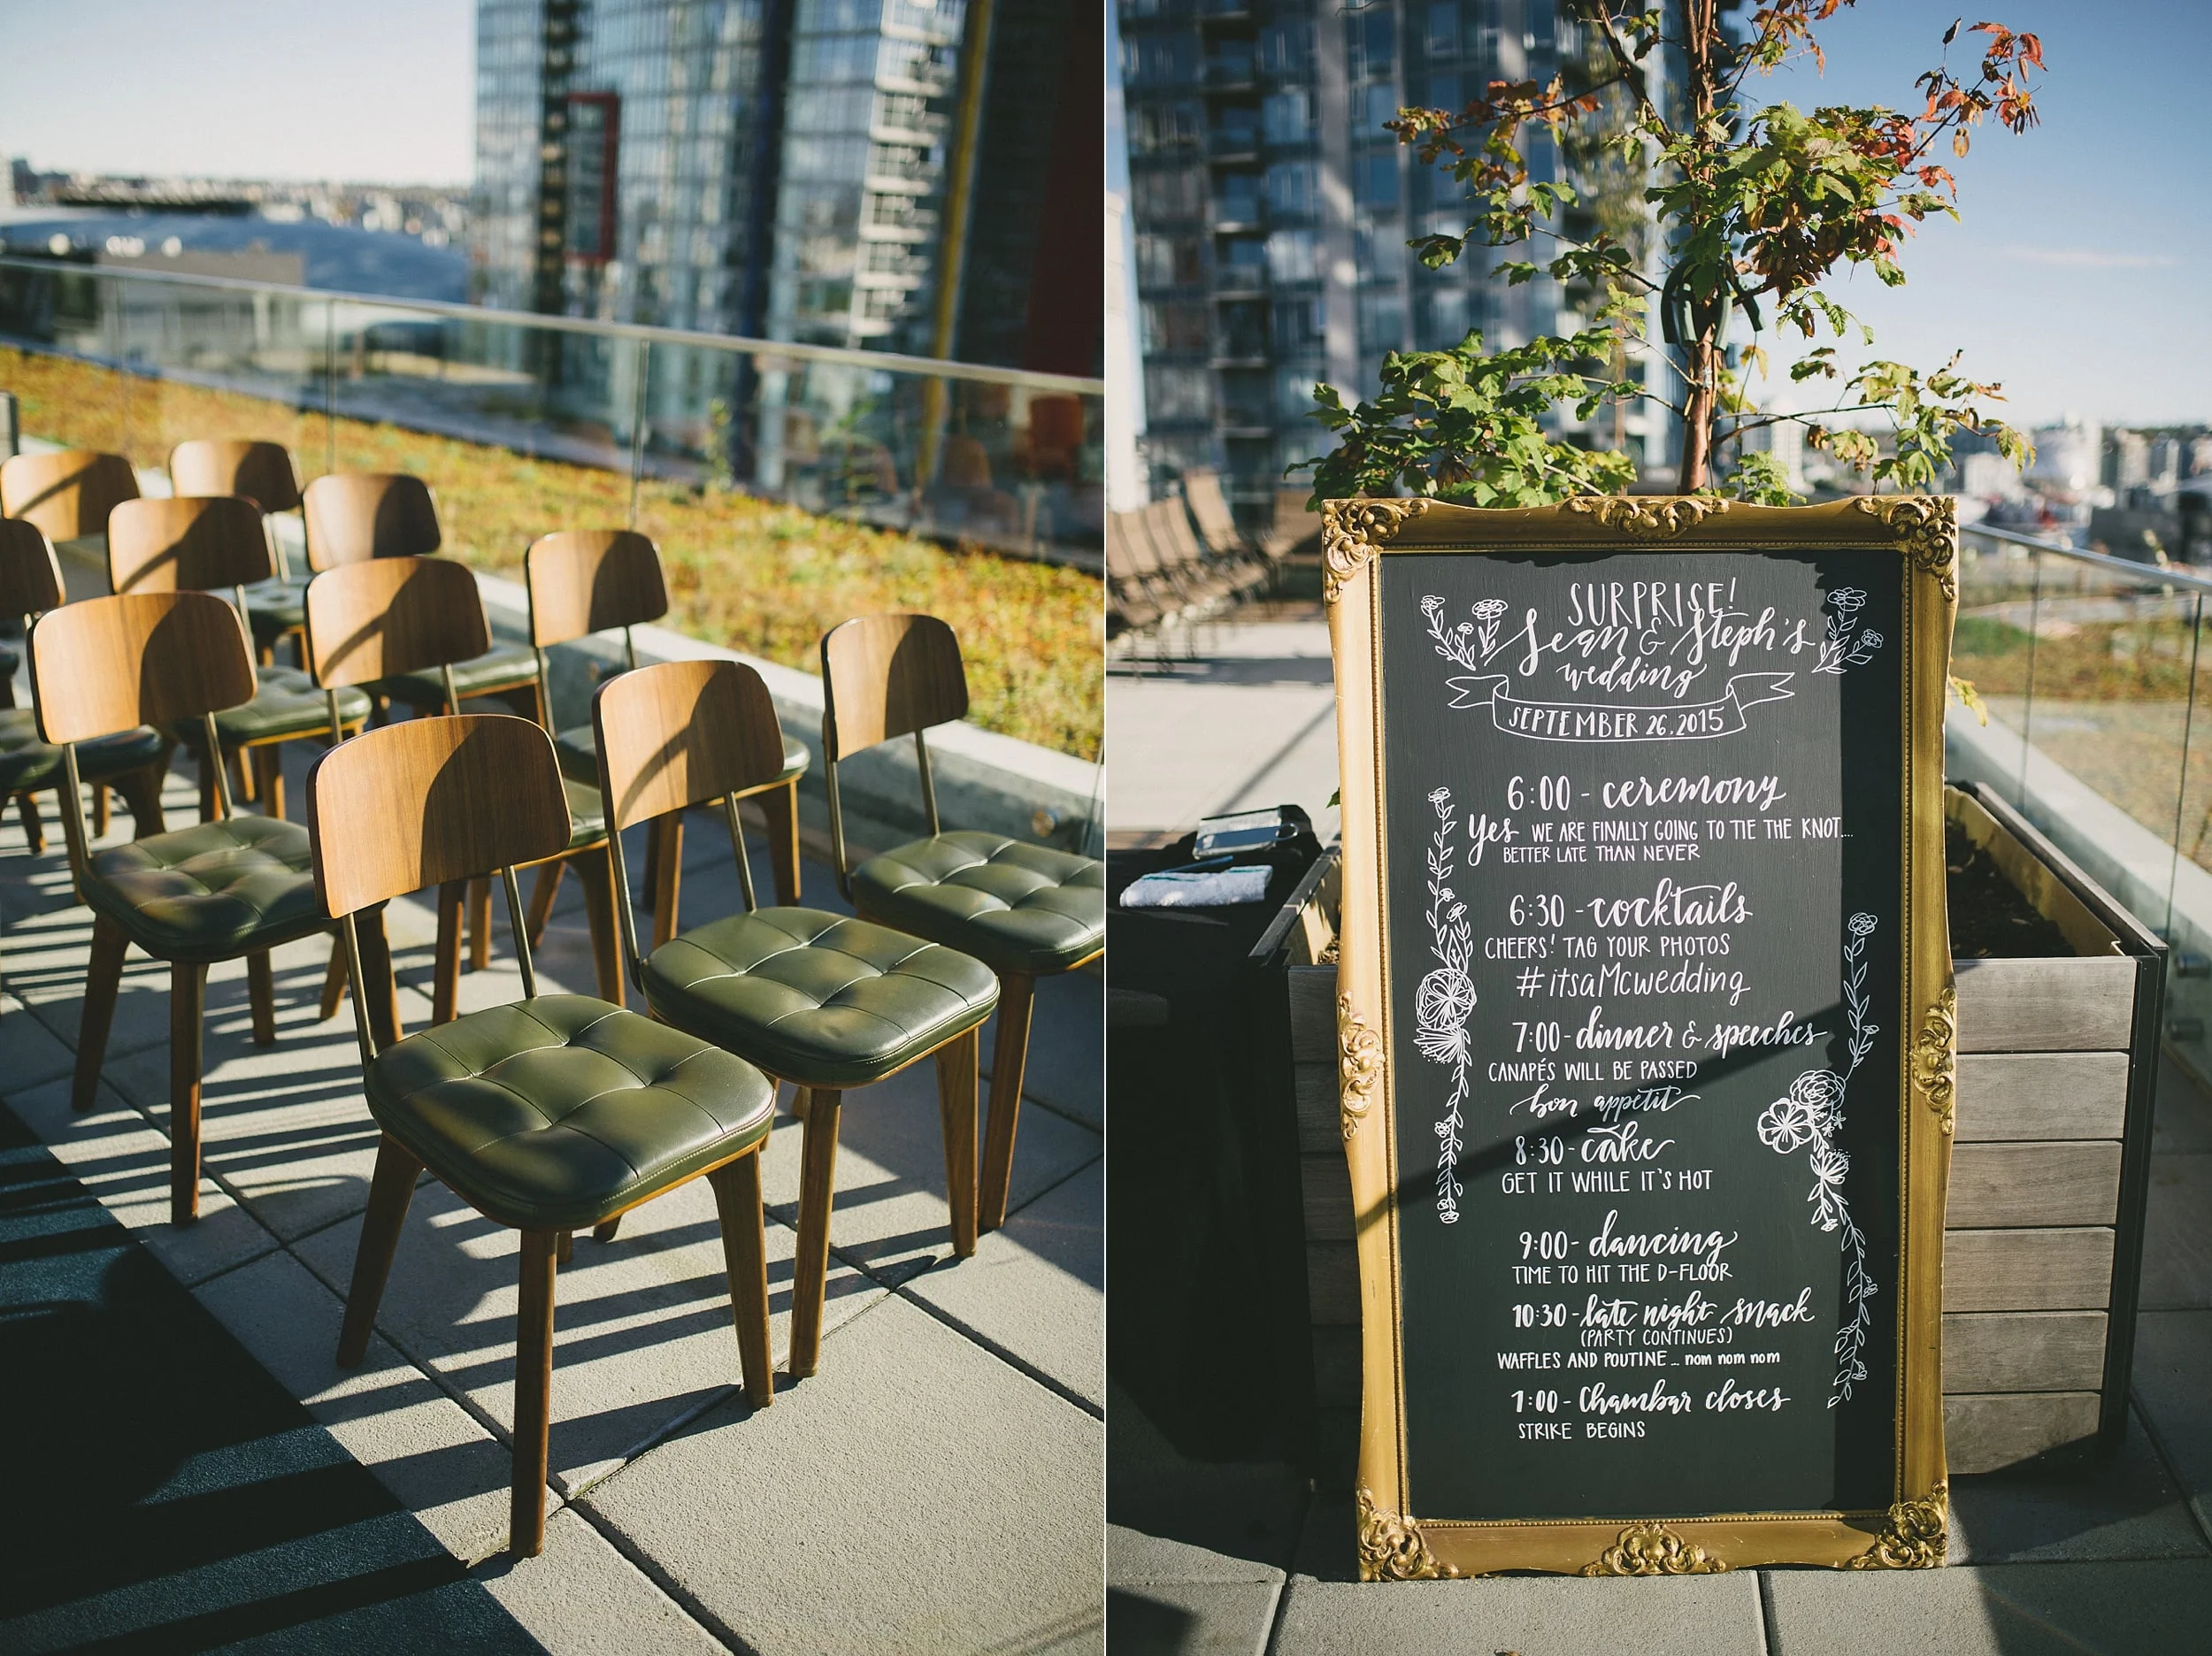 SURPRISE!
Sean & Steph's
wedding
SEPTEMBER 26.2015
6:00 - ceremony
Yes WE ARE FINALLY GOING TO TIE THE KNOT...
BETTER LATE THAN NEVER
6:30 - cocktails
CHEERS! TAG YOUR PHOTOS
#itsaMcwedding
7:00 - dinner & speeches
CANAPÉS WILL BE PASSED
bon appetit
8:30 - cake
GET IT WHILE IT'S HOT
9:00 - dancing
TIME TO HIT THE D-FLOOR
10:30 - late night snack
(PARTY CONTINUES)
WAFFLES AND POUTINE... nom nom nom
1:00 - Chambar closes
STRIKE BEGINS